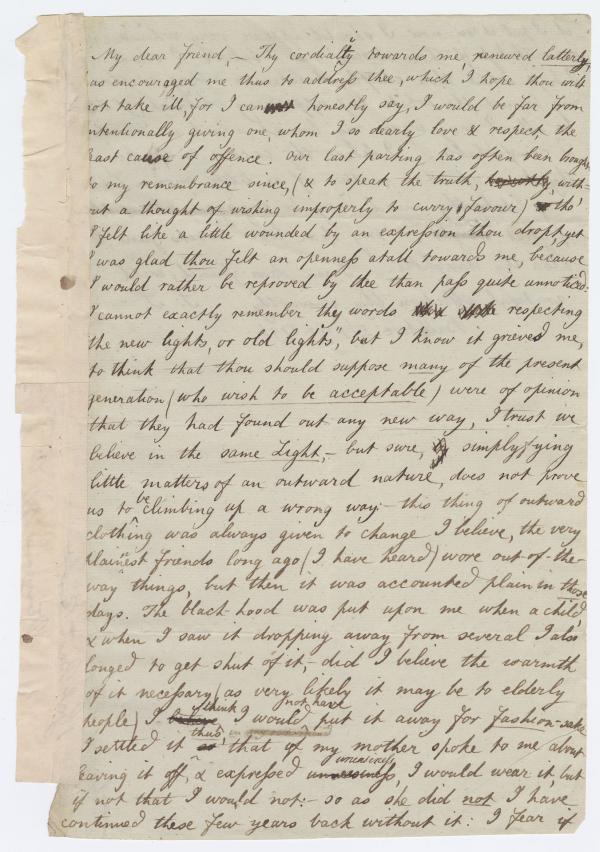 My dear friend, – Thy cordiality towards me, renewed latterly,
as encouraged me thus to address thee, which I hope thou wilt
not take ill, for I can honestly say, I would be far from
ntentionally giving one, whom I so dearly love & respect, the
east cause of offence. our last parting has often been brough
to my remembrance since, (& to speak the truth, with-
ut a thought of wishing improperly to curry favour) tho'
I felt like a little wounded by an expression thou dropt, yet
I was glad thou felt an openness atall towards me, because
I would rather be reproved by thee than pass quite unnoticed:
I cannot exactly remember they words respecting
the new lights, or old lights", but I know it grieved me,
to think that thou should suppose many of the present
generation (who wish to be acceptable) were of opinion
that they had found out any new way, I trust we
believe in the same Light, – but sure, simplyfying
little matters of an outward nature, does not prove
us to be climbing up a wrong way – this thing of outward
clothing was always given to change I believe, the very
plainest friends long ago (I have heard) wore out-of-the-
way things, but then it was accounted plain in those
days. The black-hood was put upon me when a child,
& when I saw it dropping away from several I also
longed to get shut of it, – did I believe the warmth
of it necessary (as very likely it may be to elderly
people) I think I would not have put it away for fashion-sake
I settled it thus that if my mother spoke to me about
leaving it off, & expressed uneasiness, I would wear it, but
if not that I would not: – so as she did not I have
continued these few years back without it: I fear if